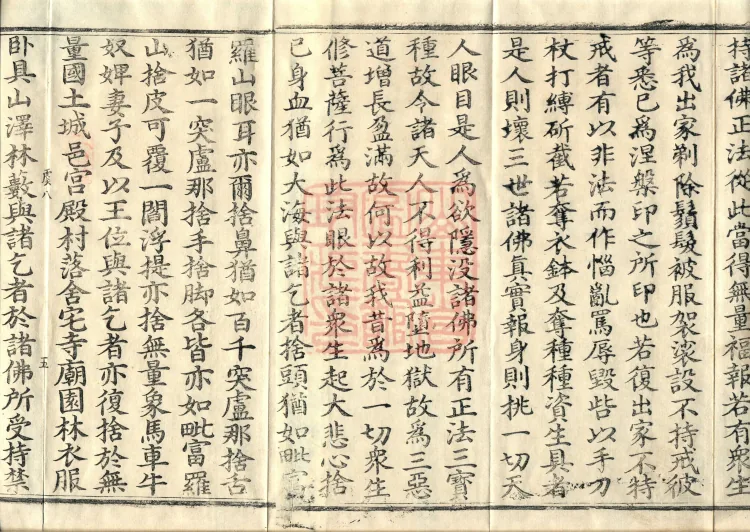 持諸佛正法從此當得無量福報若有衆生
爲我出家剃除鬚髮被服袈裟設不持戒彼
等悉已爲涅槃印之所印也若復出家不持
戒者有以非法而作惱亂罵辱毀呰以手刀
杖打縛斫截若奪衣鉢及奪種種資生具者
是人則壞三世諸佛眞實報身則挑一切天
人眼目是人爲欲隱没諸佛所有正法三寶
種故令諸天人不得利益墮地獄故爲三惡
道增長盈滿故何以故我昔爲於一切衆生
修菩薩行爲此法眼於諸衆生起大悲心捨
已身血猶如大海與諸乞者捨頭猶如毗富
羅山眼耳亦爾捨鼻猶如百千突盧那捨舌
猶如一突盧那捨手捨脚各皆亦如毗富羅
山捨皮可覆一閻浮提亦捨無量象馬車牛
奴婢妻子及以王位與諸乞者亦復捨於無
量國土城邑宮殿村落舍宅寺廟園林衣服
虞八 五
卧具山澤林藪與諸乞者於諸佛所受持禁